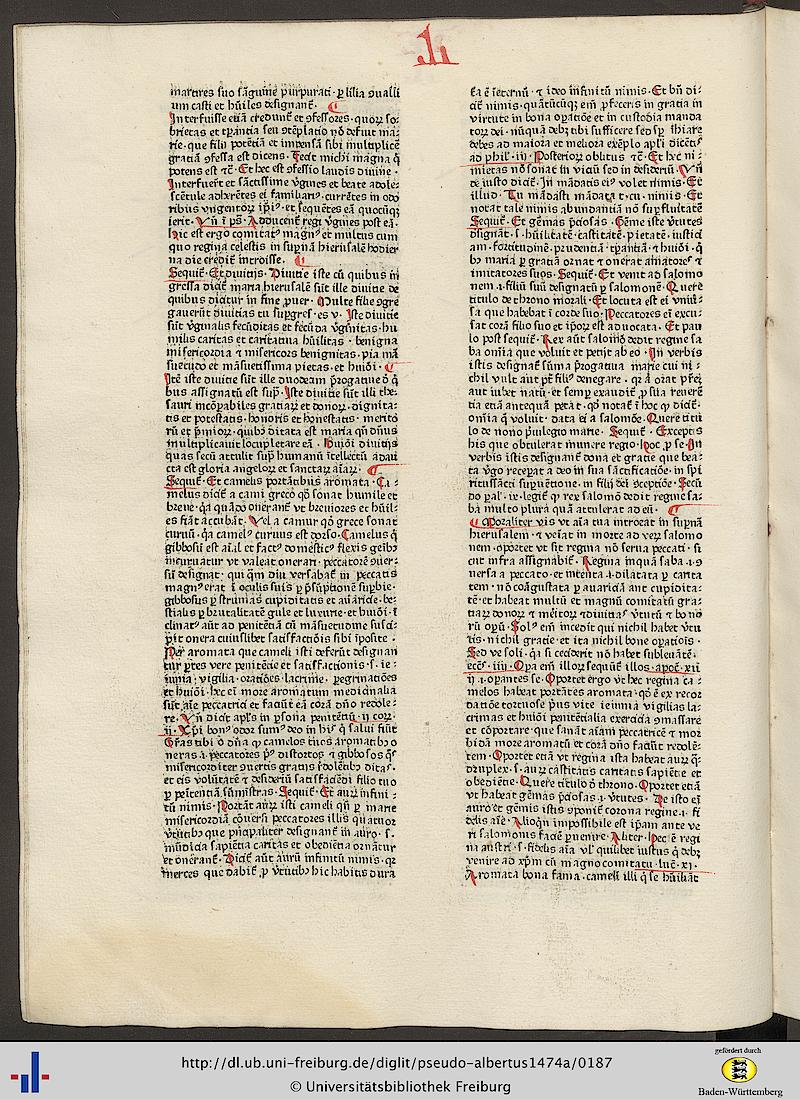 L
martires suo sāguine purpurati · ꝑ lilia ꝯualli
um casti et hūiles designant̃ .
Interfuisse etiā credunt̃ et ꝯfessores · quoꝝ so⸗
brietas et tꝑantia seu ꝯtēplatio nō defuit ma⸗
rie · que filij potētiā et impensā sibi multiplicē
gratiā ꝯfessa est dicens · Fecit michi magna q̄
potens est ⁊c̄ · Et hec est ꝯfessio laudis diuine ·
Interfuer̄t et sāctissime v̄gines et beate adole⸗
scētule adherētes ei familiariꝰ · currētes in odo
ribus vngentoꝝ ip̄iꝰ · et sequētes eā quocūqꝫ
ierit · Vn̄ ī ps̄ · Adducent̃ regi v̄gines post eā ·
Hic est ergo comitatꝰ magnꝰ et multus cum
quo regina celestis in sup̄nā hierusalē hodier
na die credit̃ introisse .
Sequit̃ · Et diuitijs · Diuitie iste cū quibus in
gressa dicit̃ maria hierusalē sūt ille diuitie de
quibus dicitur in fine ꝓuer · Multe filie ꝯgre
gauerūt diuitias tu suꝑgres · es v · Iste diuitie
sūt v̄ginalis fecūditas et fecūda v̄ginitas · hu
milis caritas et caritatiua hūilitas · benigna
misericordia ⁊ misericors benignitas · pia mā
suetudo et māsuetissima pietas · et huiōi ·
Itē iste diuitie sūt ille duodecim p̄rogatiue d̄ q̄
bus assignatū est supͣ · Iste diuitie sūt illi the⸗
sauri incōꝑabiles gratiaꝝ et donoꝝ · dignita⸗
tis et potestatis · honoris et honestatis · merito
rū et p̄mioꝝ · quibꝰ ditata est maria qn̄ dn̄us
multiplicauit locupletare eā · Huiōi diuitijs
quas secū attulit supͣ humanū ītellectū adau
cta est gloria angeloꝝ et sanctaꝝ aīaꝝ ·
Sequit̃ · Et camelis portātibus aromata · Ca⸗
melus dicit̃ a cami greco qd̄ sonat humile et
breue · qꝛ quādo onerant̃ vt breuiores et hūil⸗
es fiāt accubāt · Vel a camur qd̄ grece sonat
curuū · qꝛ camelꝰ curuus est dorso · Camelus q̄
gibbosū est aīal et factꝰ domesticꝰ flexis genibꝰ
incuruatur vt valeat onerari · peccatorē ꝯuer⸗
sū designat · qui q̄m diu versabat̃ in peccatis
magnꝰ erat ī oculis suis ꝑ p̄sūptionē suꝑbie ·
gibbosus ꝑ strumas cupiditatis et auaricie · be⸗
stialis ꝑ brutalitatē gule et luxurie · et huiōi · ī
clinatꝰ aūt ad penitētiā cū māsuetudine susci⸗
pit onera cuiuslibet satisfactiōis sibi īposite ·
Per aromata que cameli isti deferūt designan
tur ꝑtes vere penitētie et satisfactionis · s · ie⸗
iunia · vigilia · oratiōes · lacrime · ꝑegrinatiōes
et huiōi · hec eī more aromatum medicinalia
sūt aīe peccatrici et faciūt eā corā dn̄o redole⸗
re · Vn̄ dicit apl̄s in ꝑsona penitētū · ij coꝝ ·
ij · Xp̄i bonꝰ odor sumꝰ deo in hijs q̄ salui fiūt
Gr̄as tibi o dn̄a q̄ camelos tuos aromatibꝰ o
neras · i · peccatores pͥꝰ distortos ⁊ gibbosos q̄s
misericorditer ꝯuertis gratijs ⁊ redolētibꝰ ditas ·
et eis volūtatē ⁊ desideriū satisfaciēdi filio tuo
ꝑ penitentiā sūmistras · Sequit̃ · Et auꝝ infini⸗
tū nimis · Portāt auꝝ isti cameli qꝛ ꝑ marie
misericordiā cōuersi peccatores illis quatuor
v̄tutibꝰ que prīcipaliter designant̃ in auro · s ·
mūdicia sapiētia caritas et obediētia ornātur
et onerant̃ · Dicit̃ aūt aurū infinitū nimis · qꝛ
merces que dabit̃ ꝓ v̄tutibꝰ hic habitis dura
ta ē īeternū · ⁊ ideo infinitū nimis · Et bn̄ di⸗
cit̃ nimis · quātūcūqꝫ em̄ ꝓfeceris in gratia in
virtute in bona oꝑatiōe et in custodia manda
toꝝ dei · nūquā debꝫ tibi sufficere sed sꝑ īhiare
debes ad maiora et meliora exēplo apl̄i dicētꝭ
ad phil · iij · Posterioꝝ oblitus ⁊c̄ · Et hec ni⸗
mietas nō sonat in viciū sed in desideriū · Vn̄
de iusto dicit̃ · In mādatis eiꝰ volet nimis · Et
illud · Tu mādasti mādata t · cu · nimis · Et
notat tale nimis abundantiā nō suꝑfluitatē
Sequit̃ · Et gēmas p̄ciosas · Gēme iste v̄tutes
dsignāt · s · hūilitatē · castitatē · pietatē · iustici
am · fortitudinē · prudentiā · tꝑantiā · ⁊ huiōi · q̄
bꝰ maria ꝑ gratiā ornat ⁊ onerat amatores ⁊
imitatores suos · Sequit̃ · Et venit ad salomo
nem · i · filiū suū designatū ꝑ salomonē · Quere
titulo de throno morali · Et locuta est ei vniū⸗
sa que habebat ī corde suo · Peccatores eī excu⸗
sat corā filio suo et ip̄oꝝ est aduocata · Et pau
lo post sequit̃ · Rex aūt salomō dedit regine sa
ba om̄ia que voluit et petijt ab eo · In verbis
istis designat̃ sūma p̄rogatiua marie cui ni⸗
chil vult aūt pt̄ filiꝰ denegare · qꝛ ā orat p̄rēꝫ
aut iubet natū · et semꝑ exaudit̃ ꝓ sua reuerē
tia etiā antequā petāt · qd̄ notat̃ ī hoc ꝙ dicit̃ ·
om̄ia q̄ voluit · data eī a salomōe · Quere titu
lo de nono p̄uilegio marie · Sequit̃ · Exceptis
his que obtulerat munere regio · hoc ꝓ se · In
verbis istis designant̃ dona et gratie que bea⸗
ta v̄go recepat a deo in sua sāctificatiōe · in spi
ritussācti suꝑuētione · in filij dei ꝯceptiōe · Secū
do ꝑal · ix · legit̃ ꝙ rex salomō dedit regine sa⸗
ba multo plura quā attulerat ad eū ·
Moraliter vis vt aīa tua introeat in sup̄nā
hierusalem · ⁊ veīat in morte ad veꝝ salomo
nem · oportet vt sit regina nō serua peccati · si
cut infra assignabit̃ · Regina inquā saba · i · ꝯ
uersa a peccato · et intenta · i · dilatata ꝑ carita
tem · nō coāgustata ꝑ auariciā ant̃ cupidita⸗
tē · et habeat multū et magnū comitatū gra⸗
tiaꝝ donoꝝ ⁊ mēitoꝝ ⁊ diuitiaꝰ v̄tutū ⁊ bono
rū oꝑū · Solꝰ em̄ incedit qui nichil habet v̄tu
tis · nichil gratie et ita nichil bone oꝑatiōis ·
Sed ve soli · qꝛ si ceciderit nō habet subleuātē ·
ecc̄s · iiij · Oꝑa em̄ illoꝝ sequūt̃ illos · apoc̄ · xii
ij · i · oꝑantes se · Oportet ergo vt hec regina ca⸗
melos habeat portātres aromata · qd̄ ē ex recor
datiōe tortuose pͥus vite ieiunia vigilias la⸗
crimas et huiōi penitētialia exercicia ꝯmassare
et cōportare · que sanāt aīam peccatricē ⁊ mor
bidā more aromatū et corā dn̄o faciūt redolē⸗
tem · Oportet etiā vt regina ista habeat auꝝ q̄⸗
druplex · s · auꝝ castitatis caritatis sapiētie et
obediētie · Quere titulo d̄ throno · Oportet etiā
vt habeat gēmas p̄ciosas · i · v̄tutes · De isto eī
auro et gēmis istis ꝯponit̃ corona regine · i · fi
delis aīe · Alioqn̄ impossibile est ip̄am ante ve
ri salomonis faciē ꝑuenire · Aliter · Hec ē regi
na austri · s · fidelis aīa vl̄ quilibet iustus q̄ debꝫ
venire ad xp̄m cū magno comitatu · luc̄ · xi ·
Aromata bona fama · cameli illi q̄ se hūiliāt
http://dl.ub.uni-freiburg.de/diglit/pseudo-albertus1474a/0187
© Universitätsbibliothek Freiburg
gefördert durch
Baden-Württemberg